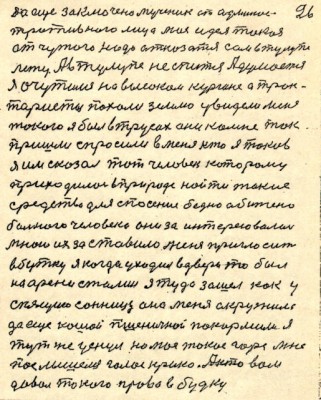 26
да еще заключено мученик от админис-
тративного лица моя идея такая
от чужого надо отказатся сам в тулупе
лежу. А в тулупе не спится а думается
Я очутился на высоком кургане а трак-
таристы пахали землю увидели меня
такого я был в трусах они ко мне так
пришли спросили в меня кто я таков
я им сказал тот человек которому
приходилось в природе найти такие
средства для спасения бедно обижено
больного человека они за интересовались
мною их заставило меня пригласить
в бутку я когда уходил в дверь то был
на арене стали я туда зашел как у
спящую они меня окружили
да еще кашой пшеничной покормили я
тут же ценил на мое такое горе мне
послышался голос крико. А кто вам
давал такого право в будку